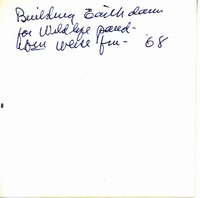 Building Earth dam
for Wildlife pond-
Don Weise fm- '68